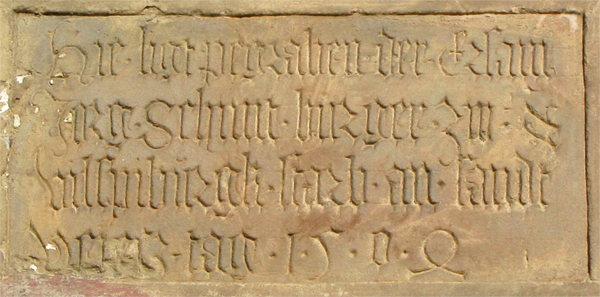 Hie · ligt · pegraben · der · Ersam
Jorg · Schmit · burger · zw ·
vilspiburgk · starb · an · sandt
tag · 15 · 0 · 4